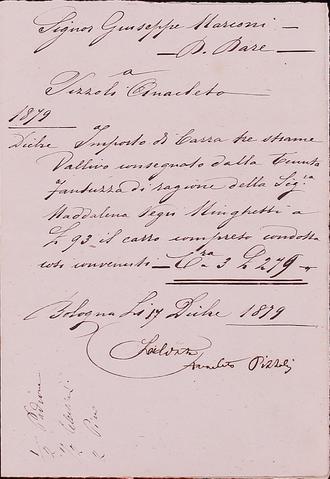 Signor Giuseppe Marconi —
— D. Dare —
a
Pizzoli Anacleto
1879
Dicbre Importo di Carra tre strame
Vallivo consegnato dalla Tenuta
Fantuzza di ragione della Sigra
Maddalena Pegri Minghetti a
£ 93 il carro compreso condotta
così convenuti — Cra 3 £ 279 —
Bologna Li 17 Dicbre 1879
Saldato
Anacleto Pizzoli